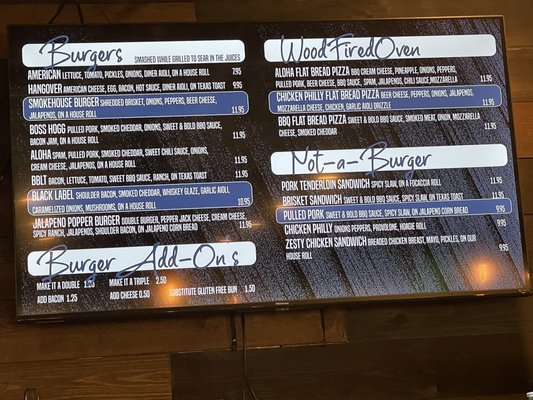 Burgers
SMASHED WHILE GRILLED TO SEAR IN THE JUICES
AMERICAN LETTUCE, TOMATO, PICKLES, ONIONS, DINER AIOLI, ON A HOUSE ROLL 7.95
HANGOVER AMERICAN CHEESE, EGG, BACON, HOT SAUCE, DINER AIOLI, ON TEXAS TOAST 9.95
SMOKEHOUSE BURGER SHREDDED BRISKET, ONIONS, PEPPERS, BEER CHEESE,
JALAPENOS, ON A HOUSE ROLL 11.95
BOSS HOGG PULLED PORK, SMOKED CHEDDAR, ONIONS, SWEET & BOLD BBQ SAUCE,
BACON JAM, ON A HOUSE ROLL 11.95
ALOHA SPAM, PULLED PORK, SMOKED CHEDDAR, SWEET CHILI SAUCE, ONIONS,
CREAM CHEESE, JALAPENOS, ON A HOUSE ROLL 11.95
BBLT BACON, LETTUCE, TOMATO, SWEET BBQ SAUCE, RANCH, ON TEXAS TOAST 11.95
BLACK LABEL SHOULDER BACON, SMOKED CHEDDAR, WHISKEY GLAZE, GARLIC AIOLI,
CARAMELIZED ONIONS, MUSHROOMS, ON A HOUSE ROLL 11.95
JALAPENO POPPER BURGER DOUBLE BURGER, PEPPER JACK CHEESE, CREAM CHEESE,
SPICY RANCH, JALAPENOS, SHOULDER BACON, ON JALAPENO CORN BREAD 11.95
Burger Add-Ons
MAKE IT A DOUBLE 1.50 MAKE IT A TRIPLE 2.50
ADD BACON 1.25 ADD CHEESE 0.50 SUBSTITUTE GLUTEN FREE BUN 1.50
WoodFiredOven
ALOHA FLAT BREAD PIZZA BBQ CREAM CHEESE, PINEAPPLE, ONIONS, PEPPERS,
PULLED PORK, BEER CHEESE, BBQ SAUCE, SPAM, JALAPENOS, CHILI SAUCE,MOZZARELLA 11.95
CHICKEN PHILLY FLAT BREAD PIZZA BEER CHEESE, PEPPERS, ONIONS, JALAPENOS,
MOZZARELLA CHEESE, CHICKEN, GARLIC AIOLI DRIZZLE 11.95
BBQ FLAT BREAD PIZZA SWEET & BOLD BBQ SAUCE, SMOKED MEAT, ONION, MOZZARELLA
CHEESE, SMOKED CHEDDAR 11.95
Not-a-Burger
PORK TENDERLOIN SANDWICH SPICY SLAW, ON A FOCACCIA ROLL 11.95
BRISKET SANDWICH SWEET & BOLD BBQ SAUCE, SPICY SLAW, ON TEXAS TOAST 11.95
PULLED PORK SWEET & BOLD BBQ SAUCE, SPICY SLAW, ON JALAPENO CORN BREAD 9.95
CHICKEN PHILLY ONIONS PEPPERS, PROVOLONE, HOAGIE ROLL 9.95
ZESTY CHICKEN SANDWICH BREADED CHICKEN BREAST, MAYO, PICKLES, ON OUR
HOUSE ROLL 9.95